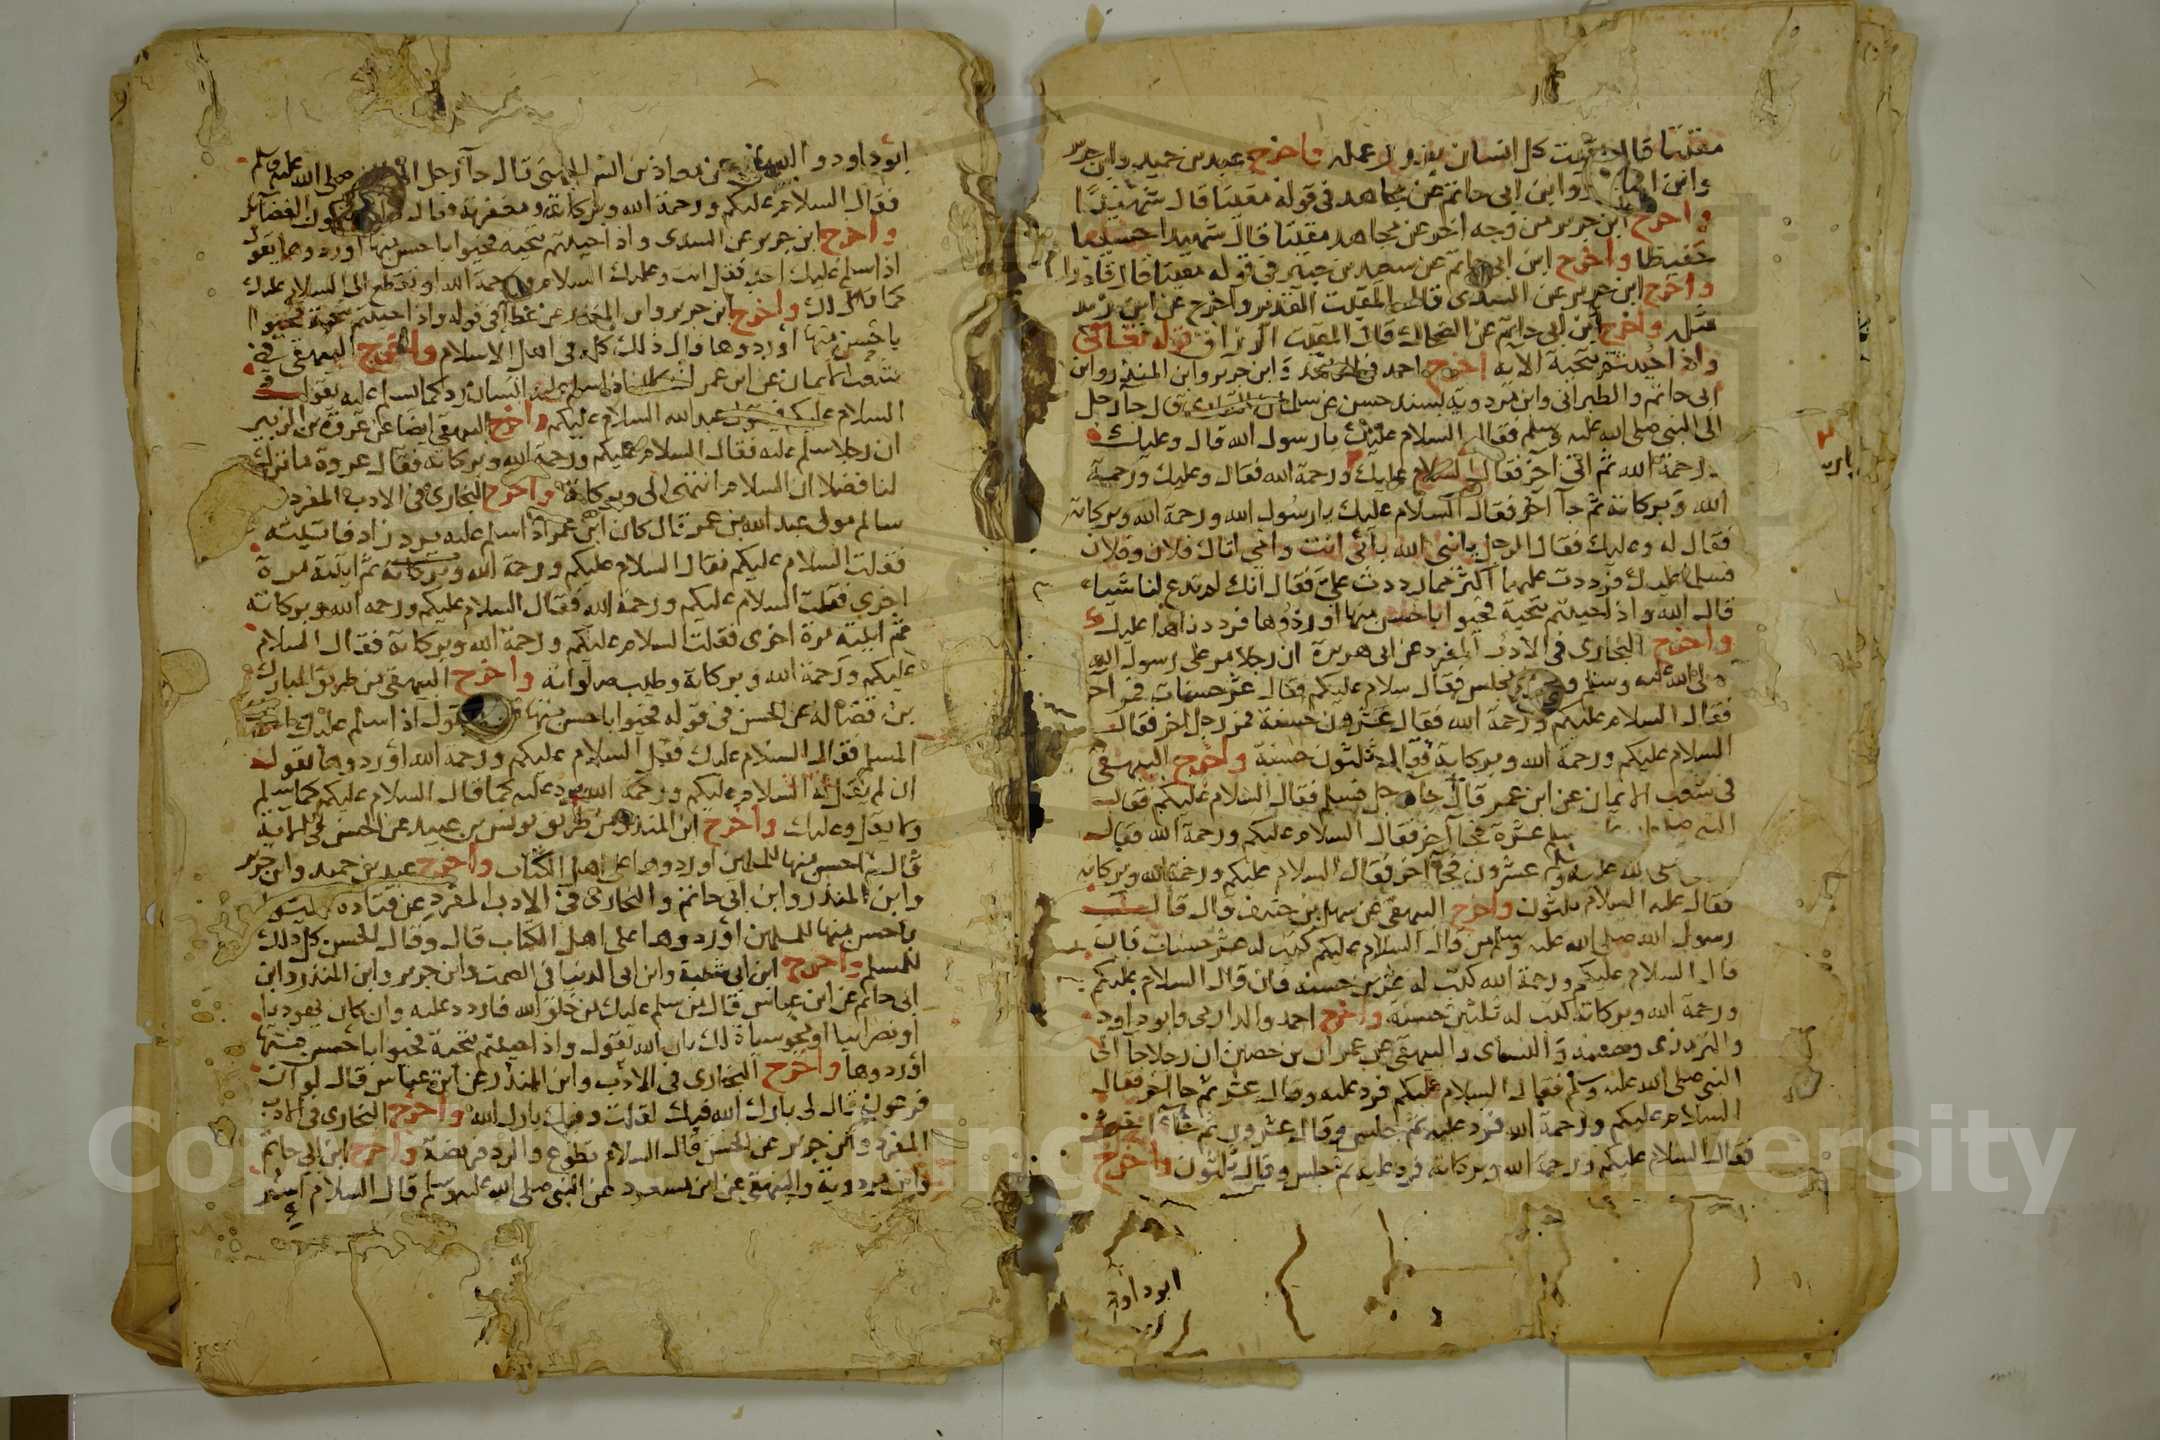 مقيتا قال يقيت كل انسان بقدر عمله واخرج عبد بن حميد وابن جرير
وابن المنذر وابن ابى حاتم عن مجاهد فى قوله مقيتا قال شهيدا
واخرج ابن جرير من وجه اخر عن مجاهد مقيتا قال شهيدا حسيبا
حفيظا واخرج ابن ابى حاتم عن سعيد بن جبير فى قوله مقيتا قال قادرا
واخرج ابن جرير عن السدى قال المقيت القدير واخرج عن ابن زيد
مثله واخرج ابن ابى حاتم عن الضحاك قال المقيت الرزاق قوله تعالى
واذا حييتم بتحية الاية اخرج احمد فى الزهد وابن جرير وابن المنذر وابن
ابى حاتم والطبرانى وابن مردوية بسند حسن عن سلمان الفارسى قال جآ رجل
الى النبى صلى الله عليه وسلم فقال السلام عليك يا رسول الله قال وعليك
ورحمة الله ثم اتى آخر فقال السلام عليك ورحمة الله فقال وعليك ورحمة
الله وبركاته ثم جآ آخر فقال السلام عليك يا رسول الله ورحمة الله وبركاته
فقال له وعليك فقال الرجل يا نبى الله بأبى انت وامى اتاك فلان وفلان
فسلما عليك فرددت عليهما اكثر مما رددت علىّ فقال انك لم تدع لنا شياء
قال الله واذا حييتم بتحية فحيوا باحسن منها او ردوها فرددناها عليك
واخرج البخارى فى الادب المفرد عن ابى هريرة ان رجلا مر على رسول الله
صلى الله عليه وسلم وهو فى مجلس فقال سلام عليكم فقال عشر حسنات فمر آخر
فقال السلام عليكم ورحمة الله فقال عشرون حسنة فمر رجل اخر فقال
السلام عليكم ورحمة الله وبركاته فقال ثلثون حسنة واخرج البيهقى
فى شعب الايمان عن ابن عمر قال جاء رجل فسلم فقال السلام عليكم فقال
النبى صلى عشرة فجآ آخر فقال السلام عليكم ورحمة الله فقال
صلى الله عليه وسلم عشرون فجآ آخر فقال السلام عليكم ورحمة الله وبركاته
فقال عليه السلام ثلثون واخرج البيهقى عن سهل بن حنيف قال قال
رسول الله صلى الله عليه وسلم من قال السلام عليكم كتب له عشر حسنات فان
قال السلام عليكم ورحمة الله كتب له عشرين حسنه فان قال السلام عليكم
ورحمة الله وبركاته كتب له ثلثين حسنة واخرج احمد والدارمى وابو داود
والترمذى وحسنه والنساى والبيهقى عن عمران بن حصين ان رجلا جآ الى
النبى صلى الله عليه وسلم فقال السلام عليكم فرد عليه وقال عشر ثم جآ اخر فقال
السلام عليكم ورحمة الله فرد عليه ثم جلس وقال عشرون ثم جآ آخر
فقال السلام عليكم ورحمة الله وبركاته فرد عليه ثم جلس وقال ثلثون واخرج
ابو داود
ابو داود والبيهقى عن معاذ بن انس الجهنى قال جآ رجل الى النبى صلى الله عليه وسلم
فقال السلام عليكم ورحمة الله وبركاته ومغفرته وقال هكذا تكون الفضآئل
واخرج ابن جرير عن السدى واذا حييتم بتحية فحيوا باحسن منها او ردوها يقول
اذا سلم عليك احد فقل انت وعليك السلام ورحمة الله او تقطع الى السلام عليك
كما قال لك واخرج ابن جرير وابن المنذر عن عطآ فى قوله واذا حييتم بتحية فحيوا
باحسن منها او ردوها قال ذلك كله فى اهل الاسلام واخرج البيهقى فى
شعب الايمان عن ابن عمر انه كان اذا سلم عليه انسان رد كما سلم عليه يقول
السلام عليكم فيقول عبد الله السلام عليكم واخرج البيهقى ايضا عن عروة بن الزبير
ان رجلا سلم عليه فقال السلام عليكم ورحمة الله وبركاته فقال عروة ما ترك
لنا فضلا ان السلام انتهى الى وبركاته واخرج البخارى فى الادب المفرد
سالم مولى عبد الله بن عمر قال كان ابن عمر اذا سلم عليه يرد زاد فاتيته
فقلت السلام عليكم فقال السلام عليكم ورحمة الله وبركاته ثم اتيته مرة
اخرى فقلت السلام عليكم ورحمة الله فقال السلام عليكم ورحمه الله وبركاته
ثم اتيته مرة اخرى فقلت السلام عليكم ورحمة الله وبركاته فقال السلام
عليكم ورحمة الله وبركاته وطيب صلواته واخرج البيهقى من طريق المبارك
بن فضاله عن الحسن فى قوله فحيوا باحسن منها يقول اذا سلم عليك اخوك
المسلم فقال السلام عليك فقل السلام عليكم ورحمة الله او ردوها يقول
ان لم يقل له السلام عليكم ورحمة الله يرد عليه كما قال السلام عليكم كما سلم
ولا يقل وعليك واخرج ابن المنذر من طريق يونس بن عبيد عن الحسن فى الاية
قال احسن منها للمسلمين او ردوها على اهل الكتاب واخرج عبد بن حميد وابن جرير
وابن المنذر وابن ابى حاتم والبخارى فى الادب المفرد عن قتادة
باحسن منها للمسلمين او ردوها على اهل الكتاب قال وقال الحسن كل ذلك
للمسلم واخرج ابن ابى شيبة وابن ابى الدنيا فى الصمت وابن جرير وابن المنذر وابن
ابى حاتم عن ابن عباس قال من سلم عليك من خلق الله فاردد عليه وان كان يهوديا
او نصرانيا او مجوسيا ذلك بان الله يقول واذا حييتم بتحية فحيوا باحسن منها
او ردوها واخرج البخارى فى الادب وابن المنذر عن ابن عباس قال لو ان
فرعون قال لى بارك الله فيك لقلت وفيك بارك الله واخرج البخارى فى الادب
المفرد وابن جرير عن الحسن قال السلام تطوع والرد فريضة واخرج ابن ابى حاتم
وابن مردوية والبيهقى عن ابن مسعود عن النبى صلى الله عليه وسلم قال السلام اسم
Copyright © King Saud University